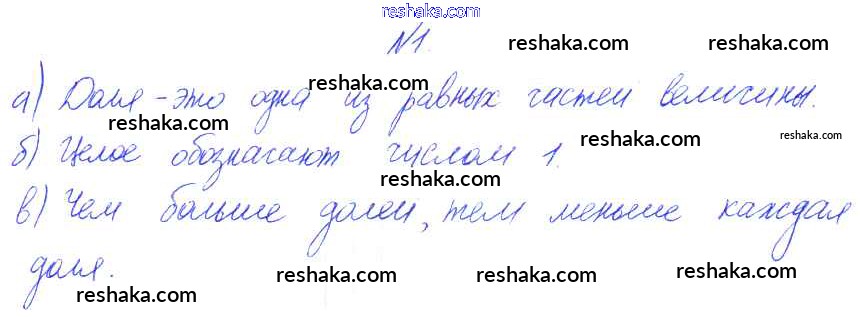 reshaka.com
№1. reshaka.com reshaka.com
а) Доля - это одна из равных частей величины.
reshaka.com
reshaka.com reshaka.com reshaka.com
б) Целое обозначают числом 1.
reshaka.com
в) Чем больше долей, тем меньше каждая
доля. reshaka.com reshaka.com reshaka.com
reshaka.com